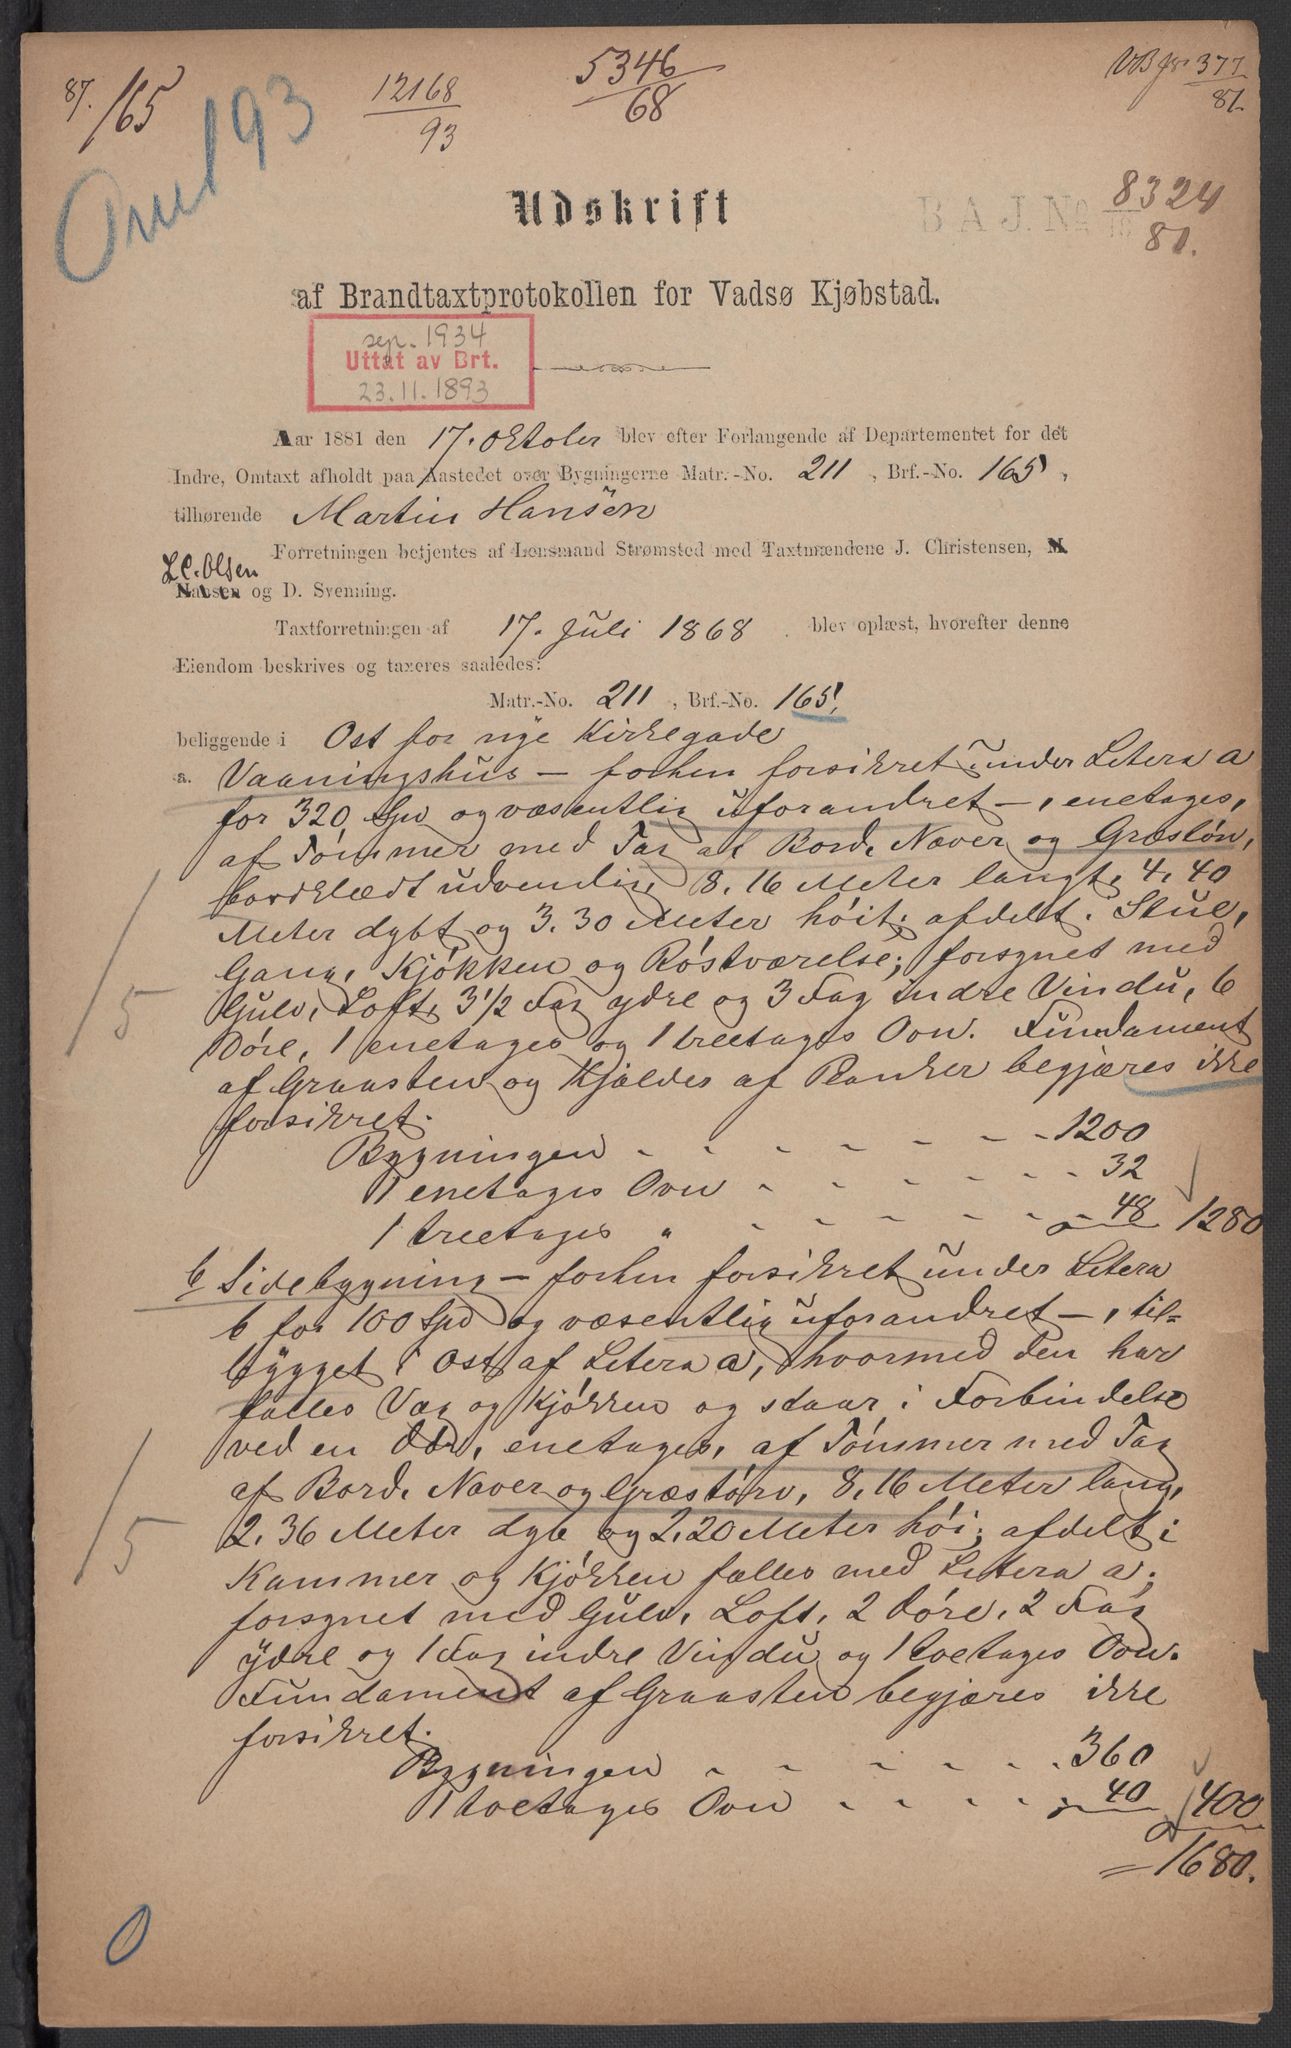 87. 165
12168
93
5346
68
VB jr 377
81.
Omt 93
Udskrift
B A J. No 8324
80.
af Brandtaxtprotokollen for Vadsø Kjøbstad.
sep. 1934
Uttat av Brt.
23.11.1893
Aar 1881 den 17. Oktober blev efter Forlangende af Departementet for det
Indre, Omtaxt afholdt paa Aastedet over Bygningerne Matr.-No. 211, Brf.-No. 165,
tilhørende Martin Hansen
Forretningen betjentes af Lensmand Strømsted med Taxtmændene J. Christensen,
L. C. Olsen og D. Svenning.
Taxtforretningen af 17. Juli 1868 blev oplæst, hvorefter denne
Eiendom beskrives og taxeres saaledes:
Matr.-No. 211, Brf.-No. 165,
beliggende i Ost for nye Kirkegade
a. Vaaningshus — forhen forsikret under Litera a
for 320 Spd og væsentlig uforandret —, enetages,
af Tömmer med Tag af Bord, Næver og Græstörv,
bordklædt udvendig, 8,16 Meter langt, 4,40
Meter dybt og 3.30 Meter höit; afdelt i Stue,
Gang, Kjökken og Röstværelse; forsynet med
Gulv, Loft, 3 1/2 Fag ydre og 3 Fag indre Vindu, 6
Döre, 1 enetages og 1 treetages Ovn. Fundament
af Graasten og Kjælder af Planker begjæres ikke
forsikret.
Bygningen - - - - - - 1200
1 enetages Ovn - - - - - - 32
1 treetages " - - - - - - 48 1280
b Sidebygning — forhen forsikret under Litera
b for 100 Spd og væsentlig uforandret —, til=
bygget i Ost af Litera a, hvormed den har
fælles Væg og Kjökken og staar i Forbindelse
ved en Dör, enetages, af Tömmer med Tag
af Bord, Næver og Græstörv, 8,16 Meter lang,
2.36 Meter dyb og 2,20 Meter höi; afdelt i
Kammer og Kjökken fælles med Litera a;
forsynet med Gulv, Loft, 2 Döre, 2 Fag
ydre og 1 Fag indre Vindu og 1 toetages Ovn.
Fundament af Graasten begjæres ikke
forsikret.
Bygningen - - - - - - 360
1 toetages Ovn - - - - - 40 400
= 1680.
/5
/5
0